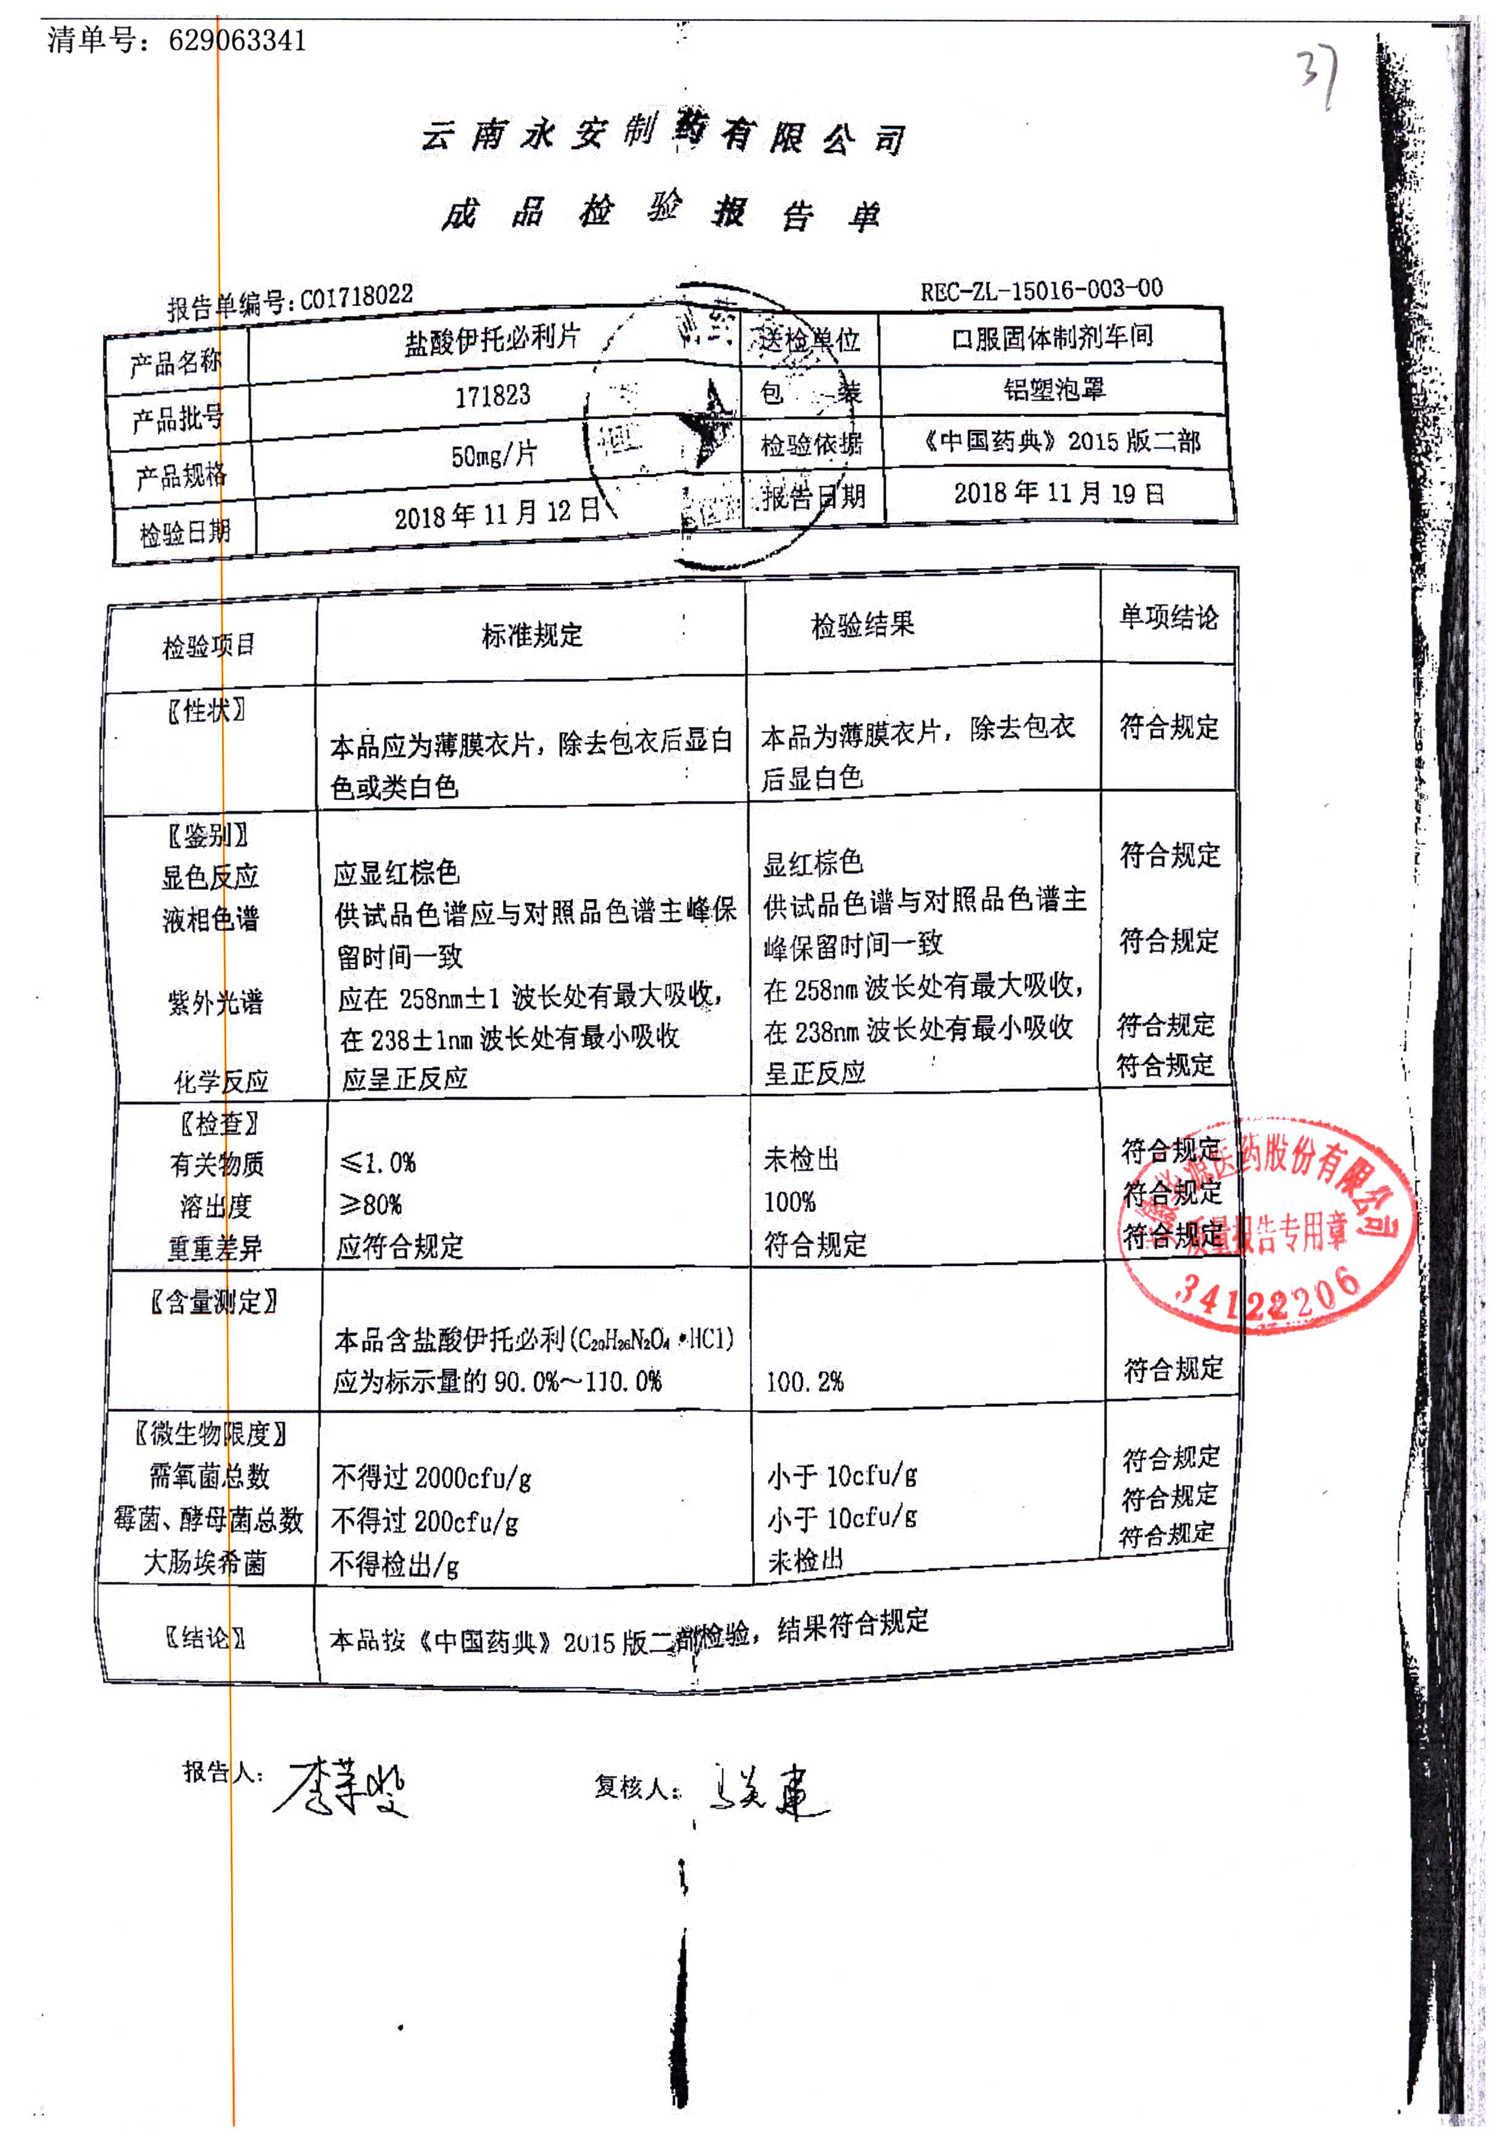 清单号：629063341
37
云南永安制药有限公司
成品检验报告单
报告单编号:C01718022
REC-ZL-15016-003-00
产品名称 盐酸伊托必利片 送检单位 口服固体制剂车间
产品批号 171823 包 装 铝塑泡罩
产品规格 50mg/片 检验依据 《中国药典》2015版二部
检验日期 2018年11月12日 报告日期 2018年11月19日
检验项目 标准规定 检验结果 单项结论
〖性状〗
本品应为薄膜衣片，除去包衣后显白 本品为薄膜衣片，除去包衣 符合规定
色或类白色 后显白色
〖鉴别〗
显色反应 应显红棕色 显红棕色 符合规定
液相色谱 供试品色谱应与对照品色谱主峰保 供试品色谱与对照品色谱主
留时间一致 峰保留时间一致 符合规定
紫外光谱 应在 258nm±1 波长处有最大吸收， 在 258nm 波长处有最大吸收，
在 238±1nm 波长处有最小吸收 在 238nm 波长处有最小吸收 符合规定
化学反应 应呈正反应 呈正反应 符合规定
〖检查〗
有关物质 ≤1.0% 未检出 符合规定
溶出度 ≥80% 100% 符合规定
重重差异 应符合规定 符合规定 符合规定
源医药股份有限公司
质量报告专用章
34122206
〖含量测定〗
本品含盐酸伊托必利(C₂₀H₂₆N₂O₄•HCl)
应为标示量的 90.0%～110.0% 100.2% 符合规定
〖微生物限度〗
需氧菌总数 不得过 2000cfu/g 小于 10cfu/g 符合规定
霉菌、酵母菌总数 不得过 200cfu/g 小于 10cfu/g 符合规定
大肠埃希菌 不得检出/g 未检出 符合规定
〖结论〗 本品按《中国药典》2015版二部检验，结果符合规定
报告人：
复核人：